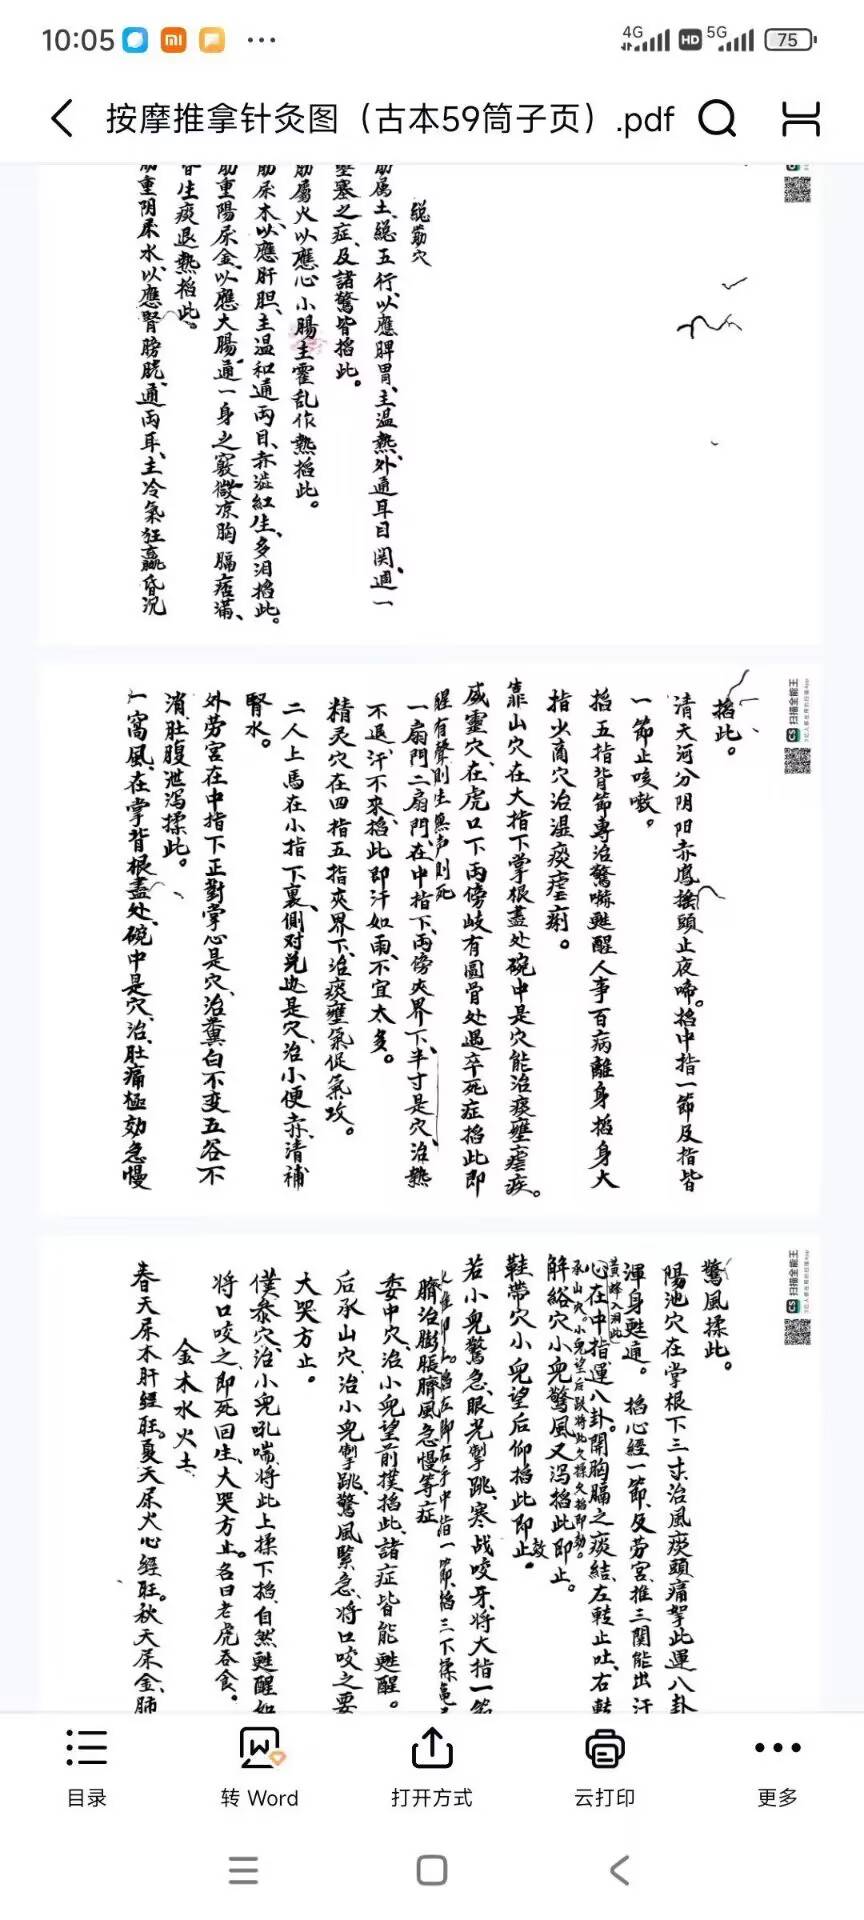 10:05
4G HD 5G 75
按摩推拿针灸图（古本59筒子页）.pdf
總筋穴
筋属土、總五行、以應脾胃、主温熱、外通耳目関、通一
壅塞之症、及諸驚皆掐此。
筋屬火以應心小腸主霍乱作熱掐此。
筋屎木、以應肝胆、主温和通两目、赤澁紅生、多泪掐此。
筋重陽屎金、以應大腸、通一身之竅、微凉胸膈痞滿、
生痰退熱掐此。
筋重阴屎水、以應腎膀胱、通两耳、主冷氣狂羸昏沉
扫描全能王
掐此。
清天河分阴阳赤鳳摇頭止夜啼。掐中指一節及指皆
一節止咳嗽。
掐五指背節專治驚嚇甦醒人事百病離身掐身大
指少商穴治湿痰瘧痢。
靠山穴在大指下掌根盡處碗中是穴能治痰壅瘧疾。
威靈穴、在虎口下两傍岐有圆骨处遇卒死症掐此即
醒有聲則生無声則死
一扇門二扇門、在中指下、两傍夾界下、半寸是穴、治熱
不退、汗不來、掐此即汗如雨、不宜太多。
精灵穴在四指五指夾界下、治痰壅氣促氣攻。
二人上馬在小指下裏、側对兑边是穴、治小便赤、清補
腎水。
外劳宫在中指下正對掌心是穴、治糞白不变五谷不
消、肚腹泄泻揉此。
一窩風、在掌背根盡处、碗中是穴、治肚痛極効急慢
扫描全能王
驚風揉此。
陽池穴在掌根下三寸治風痰頭痛掐此運八卦
渾身甦通。掐心經一節、及劳宫、推三関能出汗
黄蜂入洞此
心在中指運八卦。開胸膈之痰結、左轉止吐、右轉
承山穴。小兒望后跌将此久揉久掐即効。
解谿穴小兒驚風又泻掐此即止。
鞋帶穴小兒望后仰掐此即止。
效
若小兒驚急、眼光掣跳、寒战咬牙、将大指一節
掐左脚右手中指一節、掐三下揉
臍治膨脹臍風急慢等症
委中穴、治小兒望前撲掐此、諸症皆能甦醒。
后承山穴、治小兒掣跳、驚風緊急、将口咬之要
大哭方止。
僕參穴、治小兒吼喘、将此上揉下掐、自然甦醒如
将口咬之、即死回生、大哭方止。名曰老虎吞食。
金木水火土
春天屎木肝經旺。夏天屎火心經旺。秋天屎金、肺
目录
转 Word
打开方式
云打印
更多